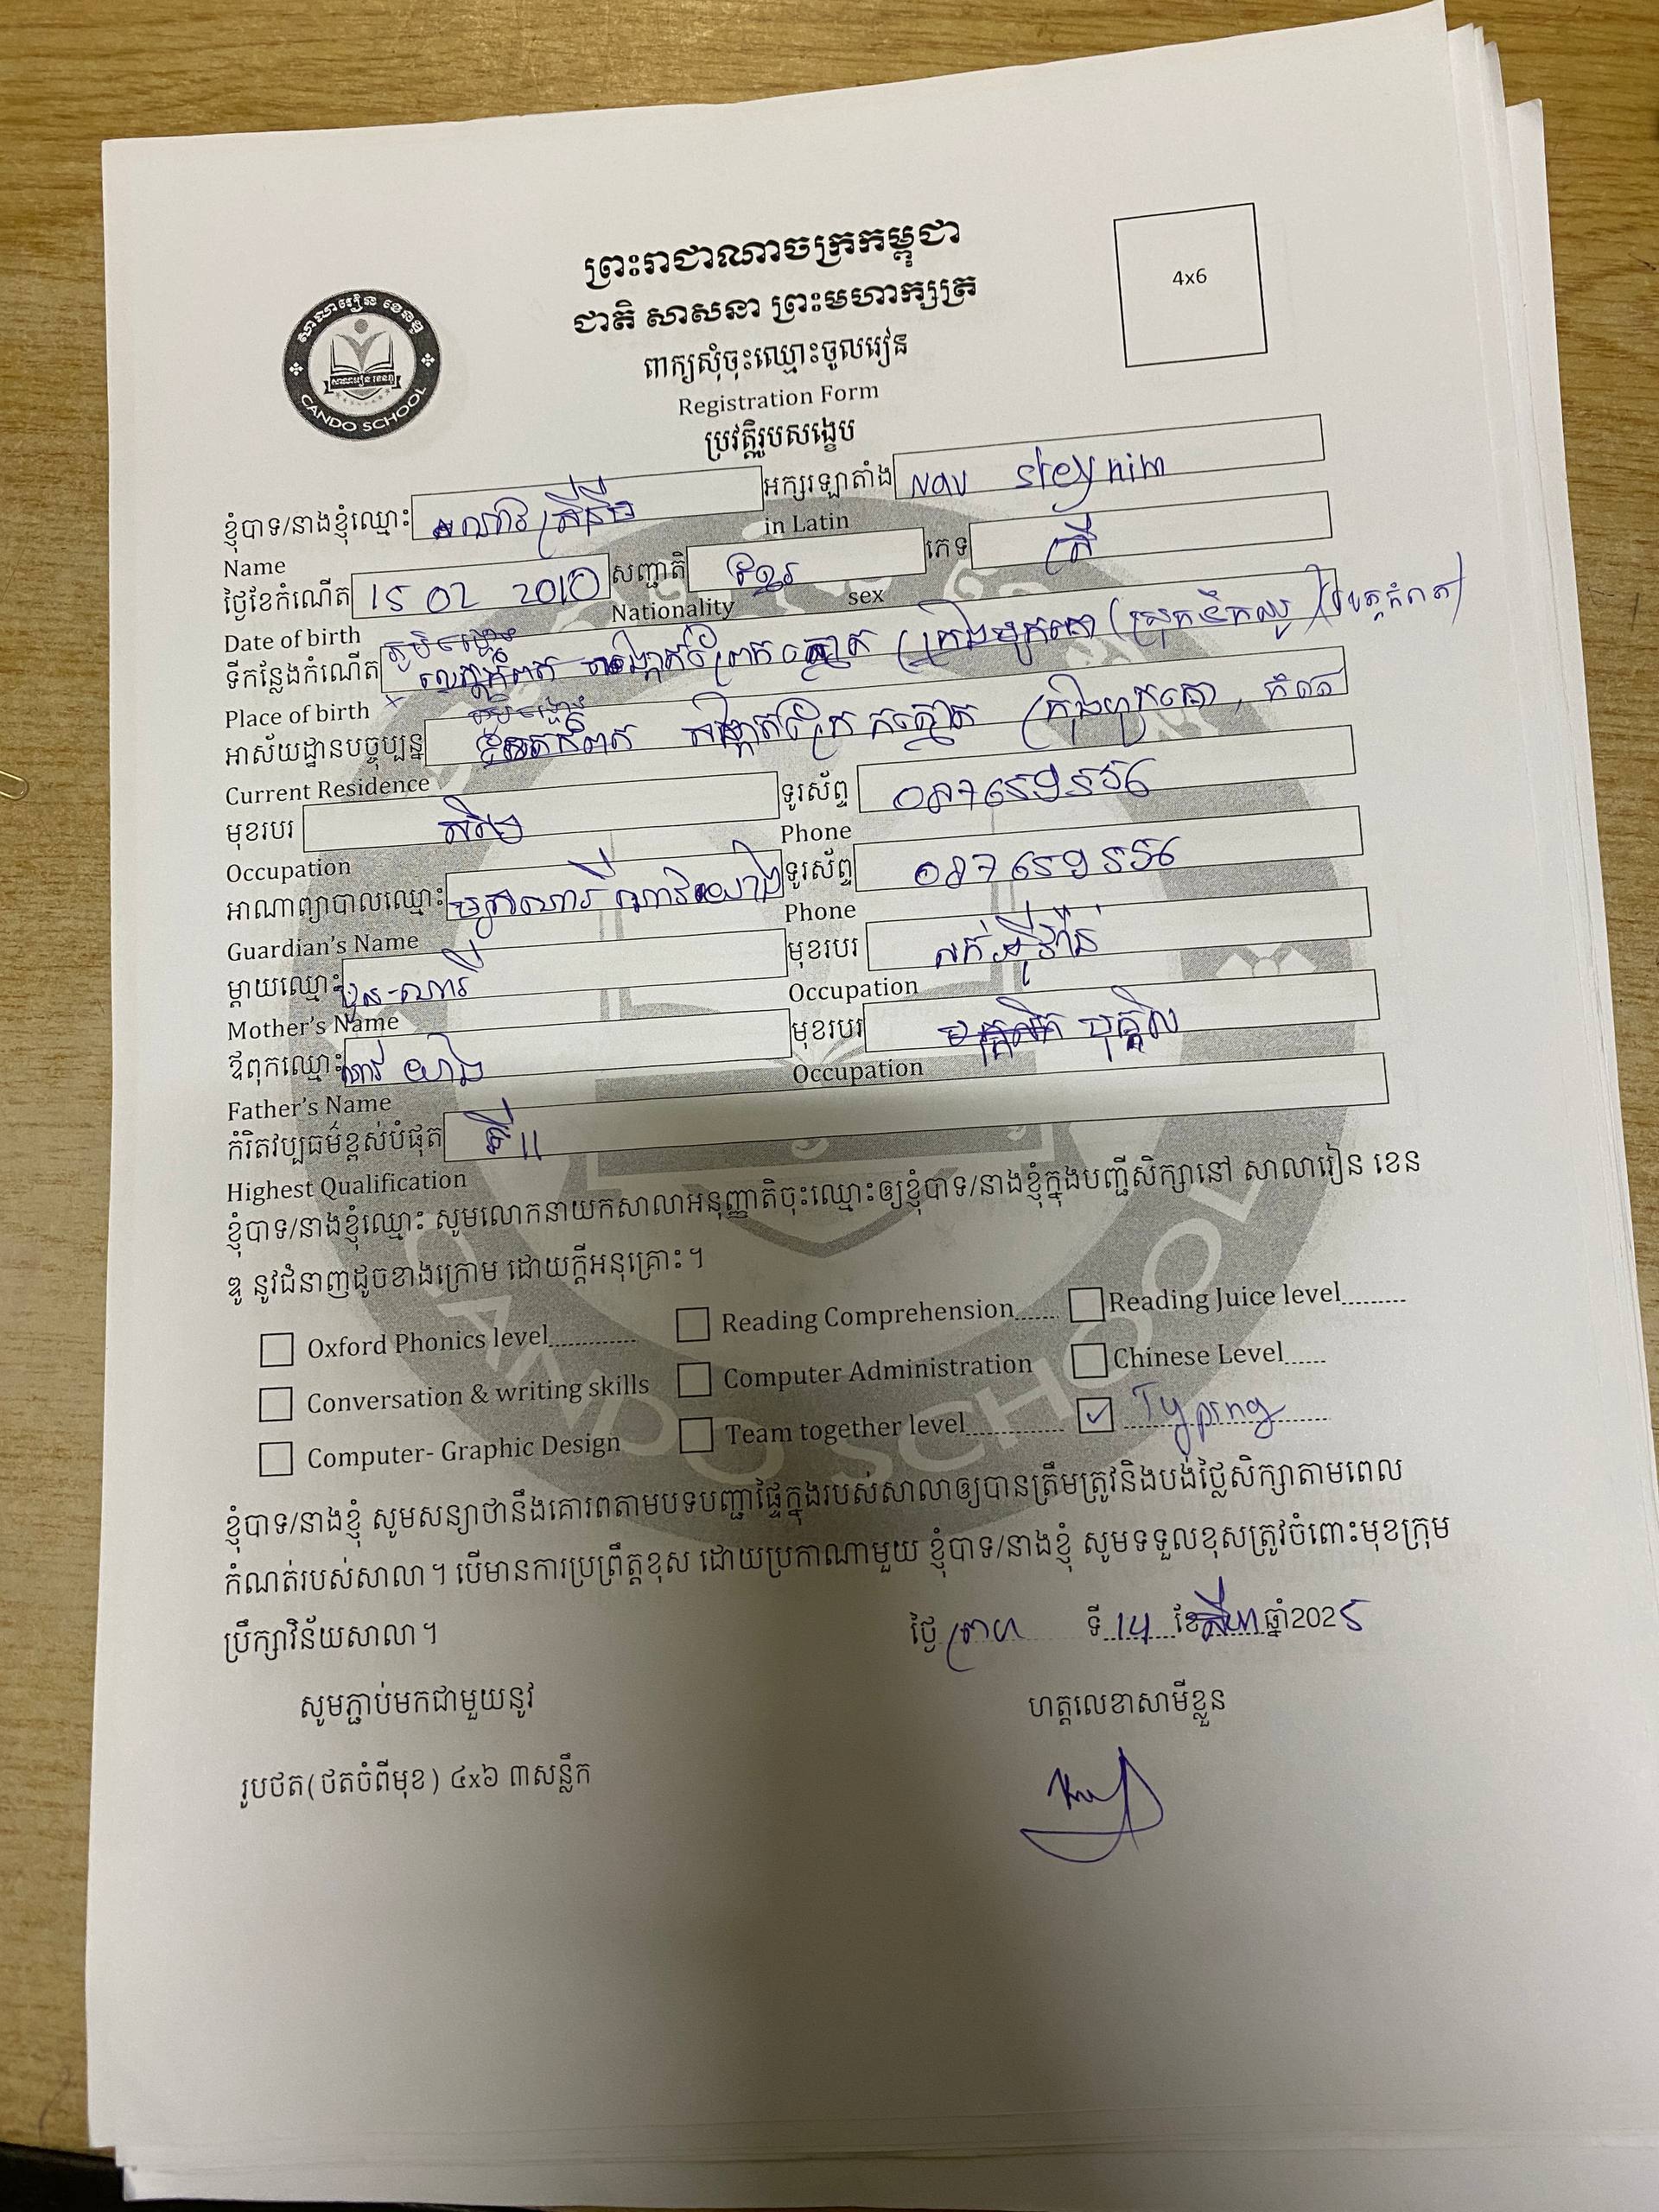 ព្រះរាជាណាចក្រកម្ពុជា
ជាតិ សាសនា ព្រះមហាក្សត្រ
4x6
សាលារៀន ខេនឌូ
CANDO SCHOOL
ពាក្យសុំចុះឈ្មោះចូលរៀន
Registration Form
ប្រវត្តិរូបសង្ខេប
ខ្ញុំបាទ/នាងខ្ញុំឈ្មោះ ណាវ ស្រីនីម អក្សរឡាតាំង Nav sreynim
Name in Latin
ថ្ងៃខែកំណើត 15 02 2010 សញ្ជាតិ ខ្មែរ ភេទ ស្រី
Date of birth Nationality sex
ទីកន្លែងកំណើត ភូមិ សង្កាត់ព្រែកត្នោត (ក្រុងបូកគោ (ស្រុកទឹកឈូ) ខេត្តកំពត)
Place of birth
អាស័យដ្ឋានបច្ចុប្បន្ន ភូមិ សង្កាត់ព្រែកត្នោត ក្រុងបូកគោ, កំពត
Current Residence
មុខរបរ សិស្ស ទូរស័ព្ទ
Occupation Phone
អាណាព្យាបាលឈ្មោះ ទូរស័ព្ទ
Guardian's Name Phone
ម្តាយឈ្មោះ មុខរបរ លក់អីវ៉ាន់
Mother's Name Occupation
ឪពុកឈ្មោះ ណាវ យ៉ាង មុខរបរ បុគ្គលិក
Father's Name Occupation
កំរិតវប្បធម៌ខ្ពស់បំផុត ទី 11
Highest Qualification
ខ្ញុំបាទ/នាងខ្ញុំឈ្មោះ សូមលោកនាយកសាលាអនុញ្ញាតិចុះឈ្មោះឲ្យខ្ញុំបាទ/នាងខ្ញុំក្នុងបញ្ជីសិក្សានៅ សាលារៀន ខេន
ឌូ នូវជំនាញដូចខាងក្រោម ដោយក្តីអនុគ្រោះ។
Oxford Phonics level............ Reading Comprehension...... Reading Juice level.........
Conversation & writing skills Computer Administration Chinese Level......
Computer- Graphic Design Team together level............. ✓ Typing
ខ្ញុំបាទ/នាងខ្ញុំ សូមសន្យាថានឹងគោរពតាមបទបញ្ជាផ្ទៃក្នុងរបស់សាលាឲ្យបានត្រឹមត្រូវនិងបង់ថ្លៃសិក្សាតាមពេល
កំណត់របស់សាលា។ បើមានការប្រព្រឹត្តខុស ដោយប្រការណាមួយ ខ្ញុំបាទ/នាងខ្ញុំ សូមទទួលខុសត្រូវចំពោះមុខក្រុម
ប្រឹក្សាវិន័យសាលា។
ថ្ងៃ ព្រហ ទី 14 ខែ សីហា ឆ្នាំ2025
សូមភ្ជាប់មកជាមួយនូវ ហត្ថលេខាសាមីខ្លួន
រូបថត(ថតចំពីមុខ) ៤x៦ ៣សន្លឹក